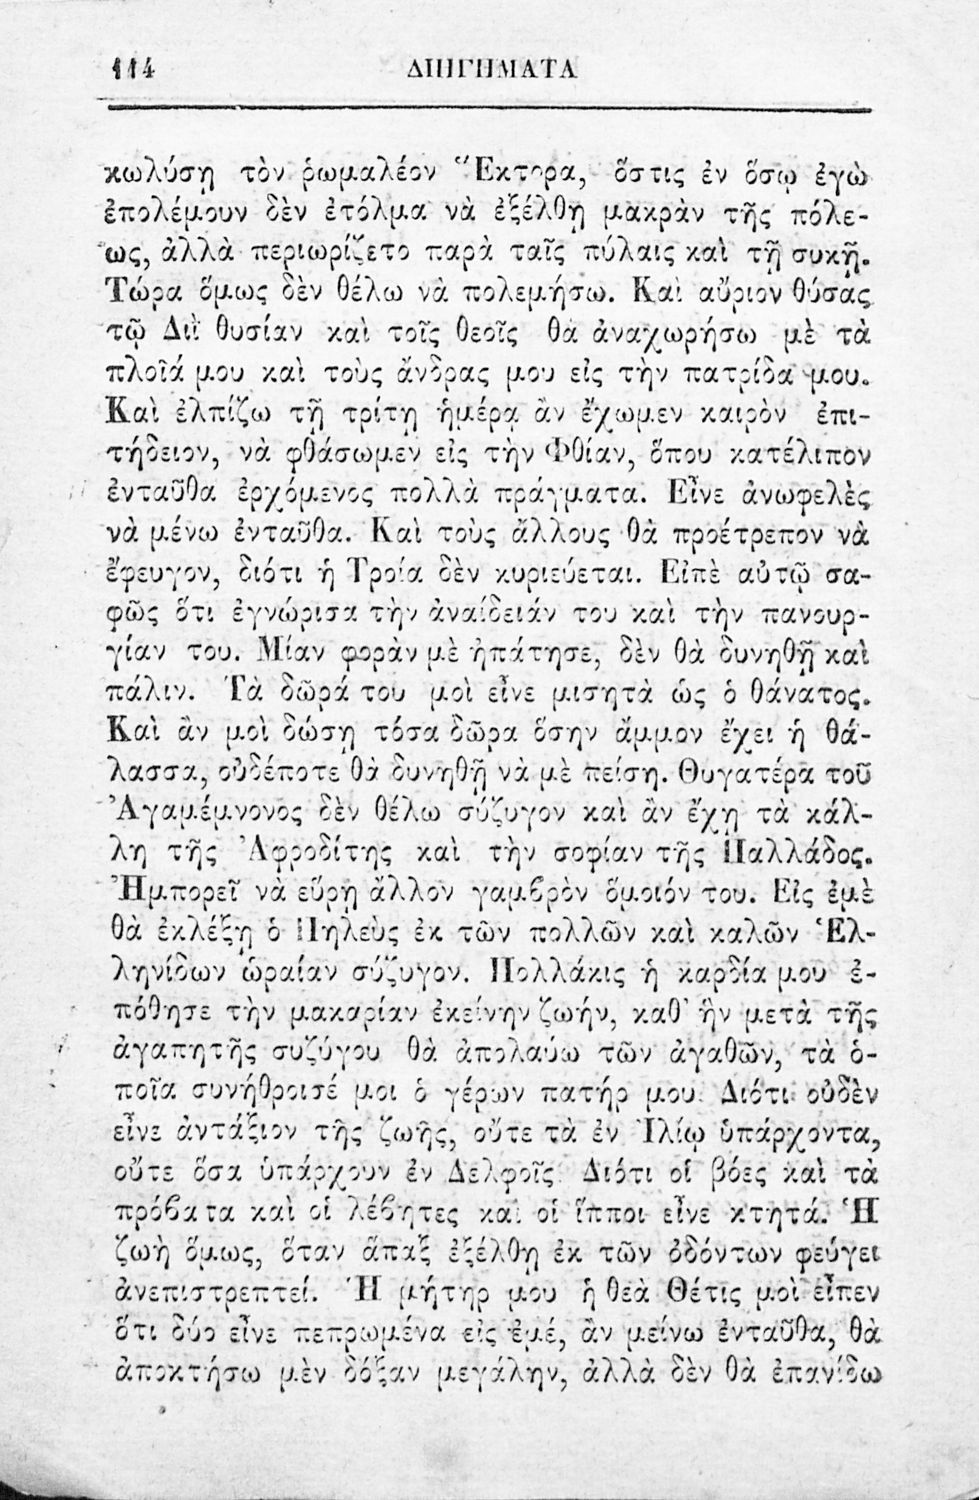 114 ΔΙΗΓΗΜΑΤΑ
κωλύσῃ τὸν ῥωμαλέον Ἕκτορα, ὅστις ἐν ὅσῳ ἐγὼ
ἐπολέμουν δὲν ἐτόλμα νὰ ἐξέλθῃ μακρὰν τῆς πόλε-
ως, ἀλλὰ περιωρίζετο παρὰ ταῖς πύλαις καὶ τῇ συκῇ.
Τώρα ὅμως δὲν θέλω νὰ πολεμήσω. Καὶ αὔριον θύσας
τῷ Διῒ θυσίαν καὶ τοῖς θεοῖς θὰ ἀναχωρήσω μὲ τὰ
πλοῖά μου καὶ τοὺς ἄνδρας μου εἰς τὴν πατρίδα μου.
Καὶ ἐλπίζω τῇ τρίτῃ ἡμέρᾳ ἂν ἔχωμεν καιρὸν ἐπι-
τήδειον, νὰ φθάσωμεν εἰς τὴν Φθίαν, ὅπου κατέλιπον
ἐνταῦθα ἐρχόμενος πολλὰ πράγματα. Εἶνε ἀνωφελὲς
νὰ μένω ἐνταῦθα. Καὶ τοὺς ἄλλους θὰ προέτρεπον νὰ
ἔφευγον, διότι ἡ Τροία δὲν κυριεύεται. Εἰπὲ αὐτῷ σα-
φῶς ὅτι ἐγνώρισα τὴν ἀναίδειάν του καὶ τὴν πανουρ-
γίαν του. Μίαν φορὰν μὲ ἠπάτησε, δὲν θὰ δυνηθῇ καὶ
πάλιν. Τὰ δῶρά του μοὶ εἶνε μισητὰ ὡς ὁ θάνατος.
Καὶ ἂν μοὶ δώσῃ τόσα δῶρα ὅσην ἄμμον ἔχει ἡ θά-
λασσα, οὐδέποτε θὰ δυνηθῇ νὰ μὲ πείσῃ. Θυγατέρα τοῦ
Ἀγαμέμνονος δὲν θέλω σύζυγον καὶ ἂν ἔχῃ τὰ κάλ-
λη τῆς Ἀφροδίτης καὶ τὴν σοφίαν τῆς Παλλάδος.
Ἠμπορεῖ νὰ εὕρῃ ἄλλον γαμβρὸν ὅμοιόν του. Εἰς ἐμὲ
θὰ ἐκλέξῃ ὁ Πηλεὺς ἐκ τῶν πολλῶν καὶ καλῶν Ἑλ-
ληνίδων ὡραίαν σύζυγον. Πολλάκις ἡ καρδία μου ἐ-
πόθησε τὴν μακαρίαν ἐκείνην ζωήν, καθ' ἣν μετὰ τῆς
ἀγαπητῆς συζύγου θὰ ἀπολαύω τῶν ἀγαθῶν, τὰ ὁ-
ποῖα συνήθροισέ μοι ὁ γέρων πατήρ μου. Διότι οὐδὲν
εἶνε ἀντάξιον τῆς ζωῆς, οὔτε τὰ ἐν Ἰλίῳ ὑπάρχοντα,
οὔτε ὅσα ὑπάρχουν ἐν Δελφοῖς. Διότι οἱ βόες καὶ τὰ
πρόβατα καὶ οἱ λέβητες καὶ οἱ ἵπποι εἶνε κτητά. Ἡ
ζωὴ ὅμως, ὅταν ἅπαξ ἐξέλθῃ ἐκ τῶν ὀδόντων φεύγει
ἀνεπιστρεπτεί. Ἡ μήτηρ μου ἡ θεὰ Θέτις μοὶ εἶπεν
ὅτι δύο εἶνε πεπρωμένα εἰς ἐμέ, ἂν μείνω ἐνταῦθα, θὰ
ἀποκτήσω μὲν δόξαν μεγάλην, ἀλλὰ δὲν θὰ ἐπανίδω